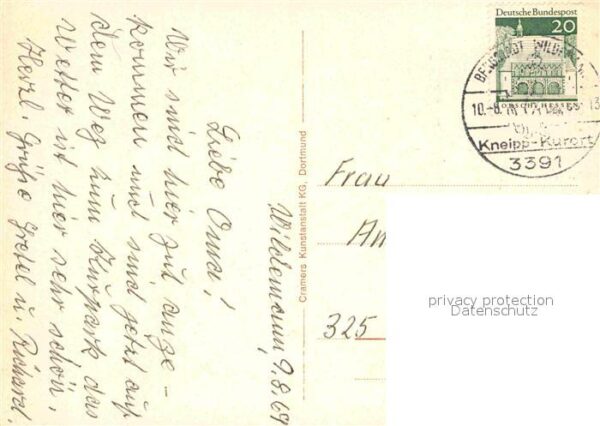 Wildemann, 9.8.69
Liebe Oma!
Wir sind hier gut ange-
kommen und sind jetzt auf
dem Weg zum Kurpark das
Wetter ist hier sehr schön.
Herzl. Grüße Gretel u. Richard.
Cramers Kunstanstalt KG, Dortmund
Deutsche Bundespost
20
LORSCH/HESSEN
BERGSTADT WILDEMANN
10.-8.
13
Kneipp-Kurort
3391
Frau
325
privacy protection
Datenschutz